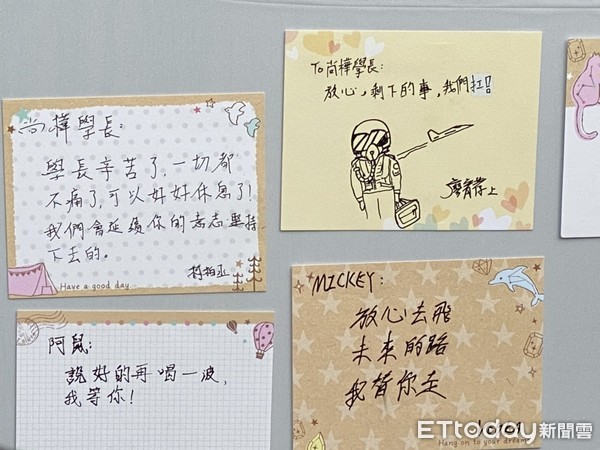 尚樺學長:
學長辛苦了,一切都
不痛了,可以好好休息了!
我們會延續你的志志堅持
下去的。
Have a good day
To尚樺學長:
放心,剩下的事,我們扛
上
阿鼠:
說好的再喝一波,
我等你!
MICKEY:
放心去飛
未來的路
我替你走
Hang on to your dream
ETtoday新聞雲